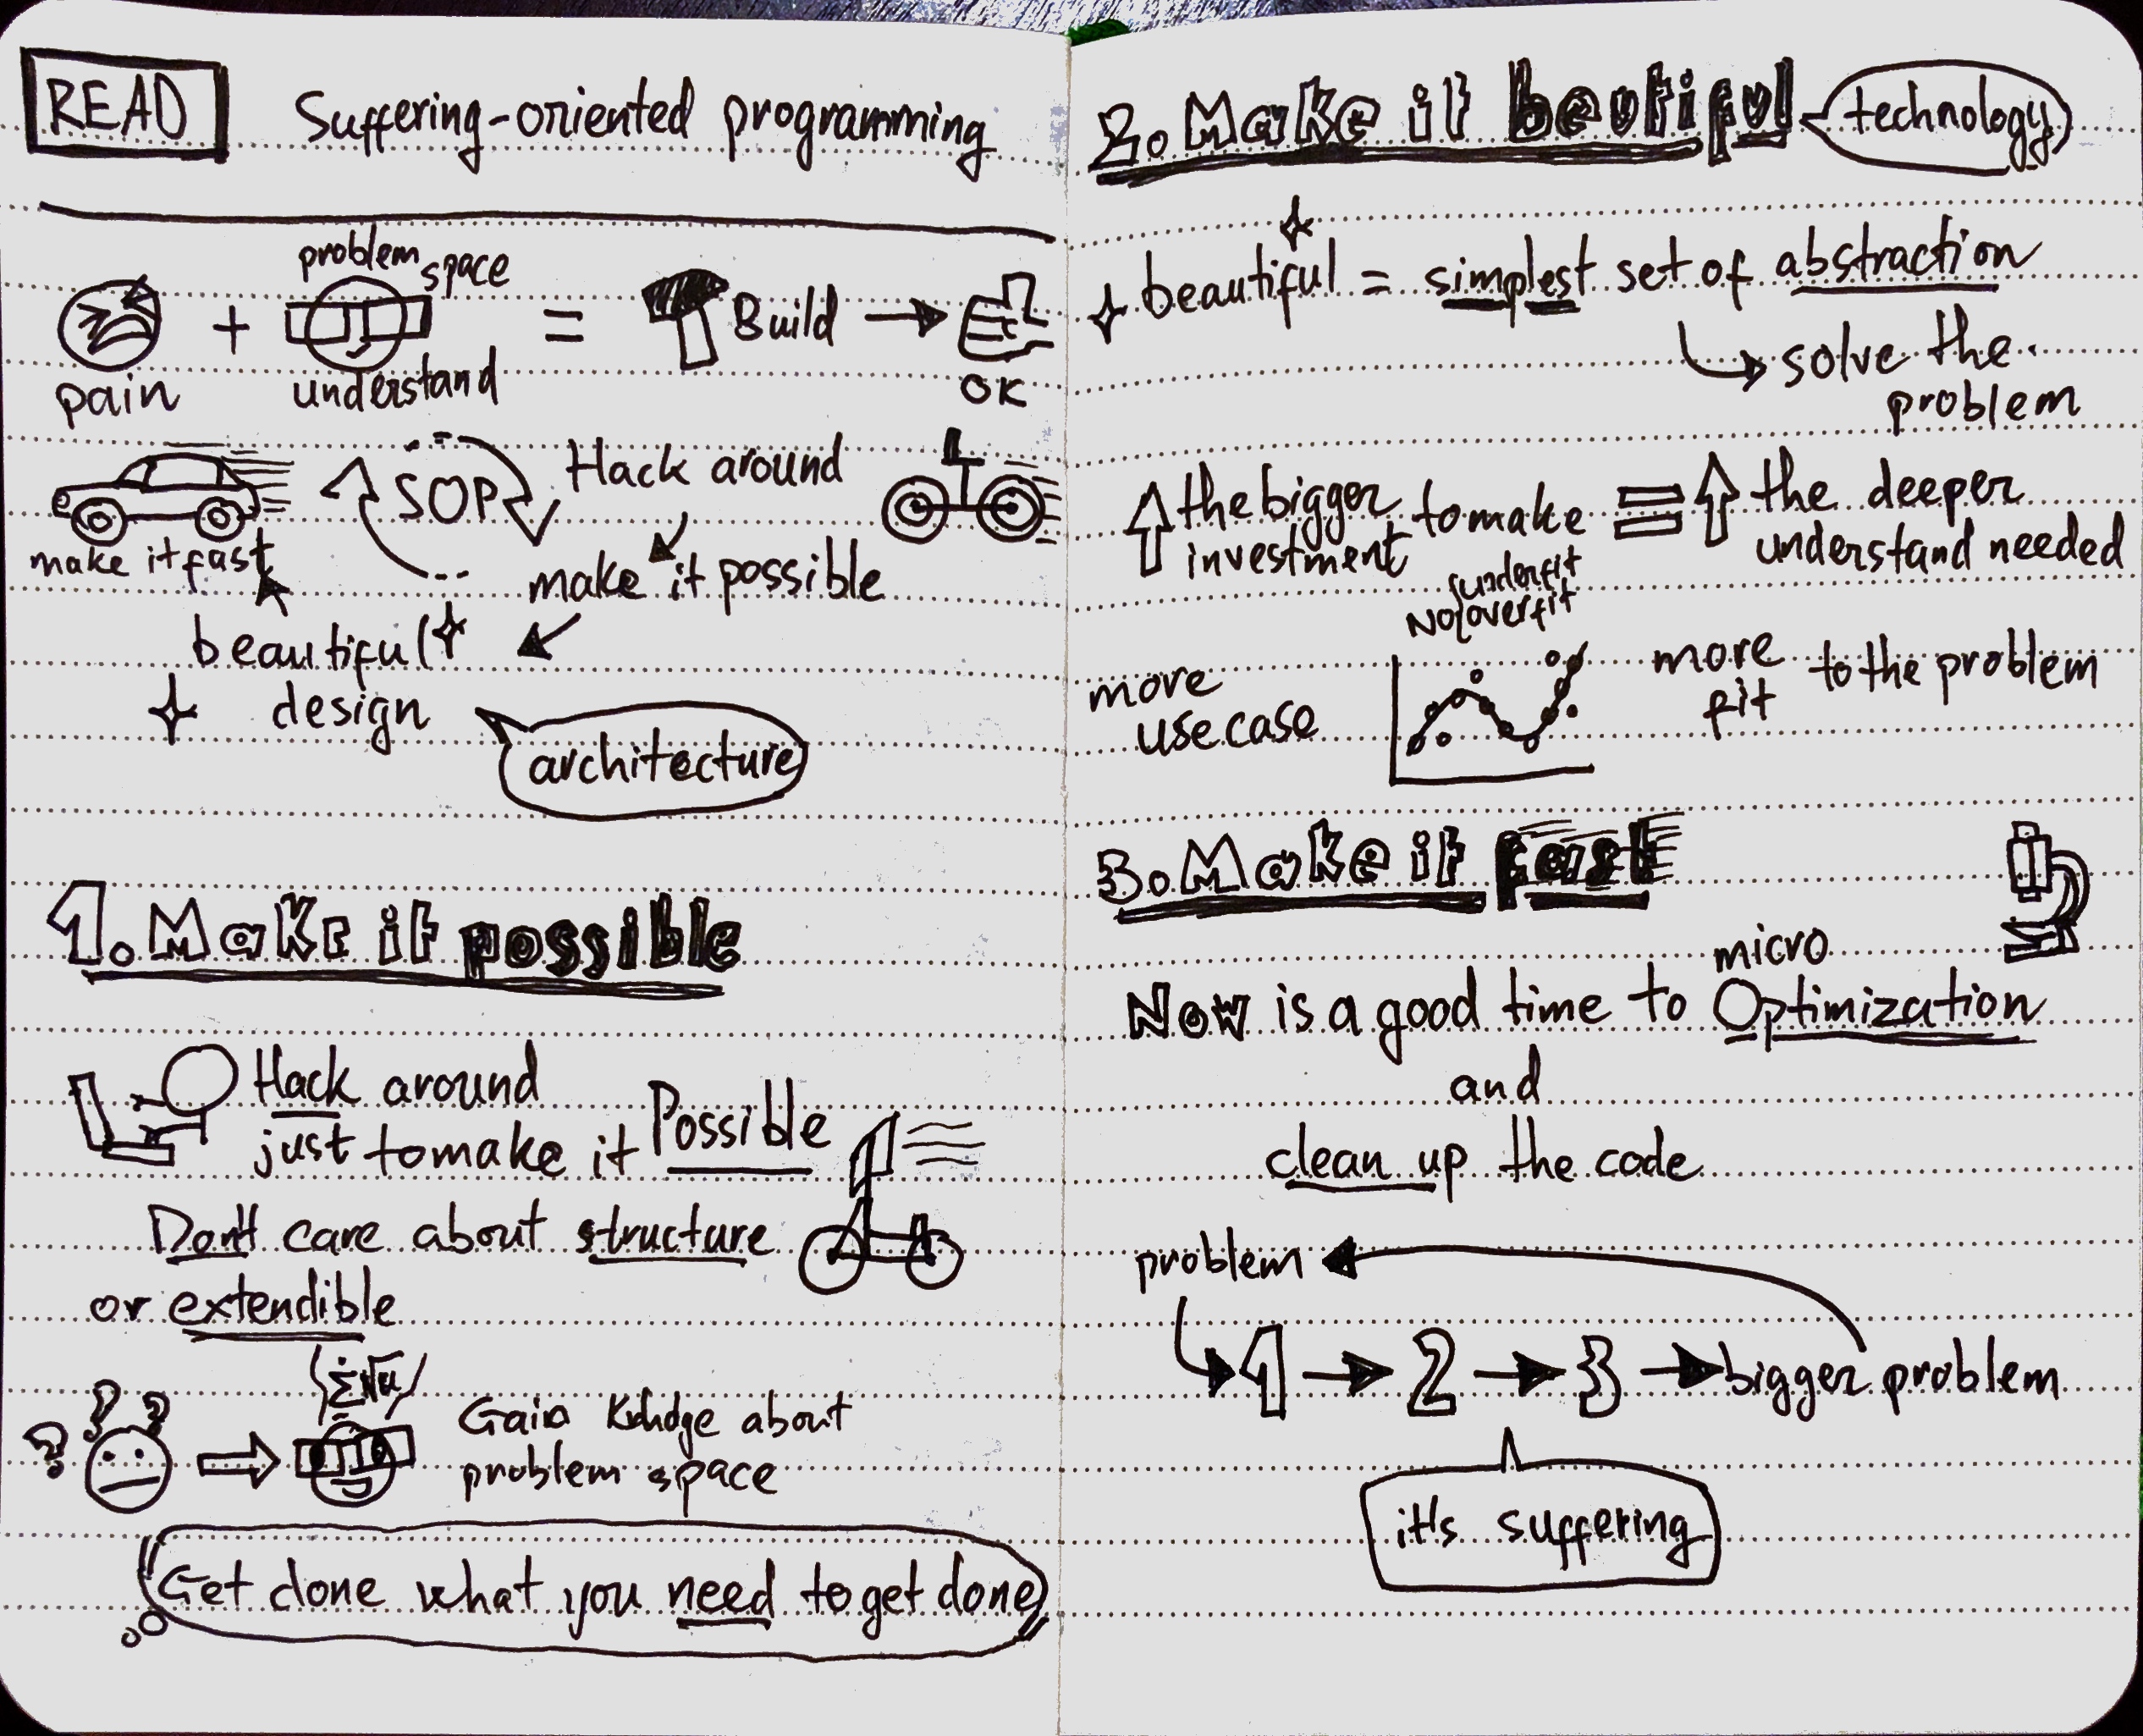 READ
Suffering-oriented programming
problem space
pain + understand = Build → OK
SOP
Hack around
make it fast
make it possible
beautiful
design
architecture
1. Make it possible
Hack around
just to make it Possible
Don't care about structure
or extendible
Gain about
problem space
Get done what you need to get done
2. Make it beutiful
technology
beautiful = simplest set of abstraction
solve the
problem
the bigger investment to make = the deeper understand needed
No underfit overfit
more use case
more fit to the problem
3. Make it fast
micro
Now is a good time to Optimization
and
clean up the code
problem
1 → 2 → 3 → bigger problem
it's suffering